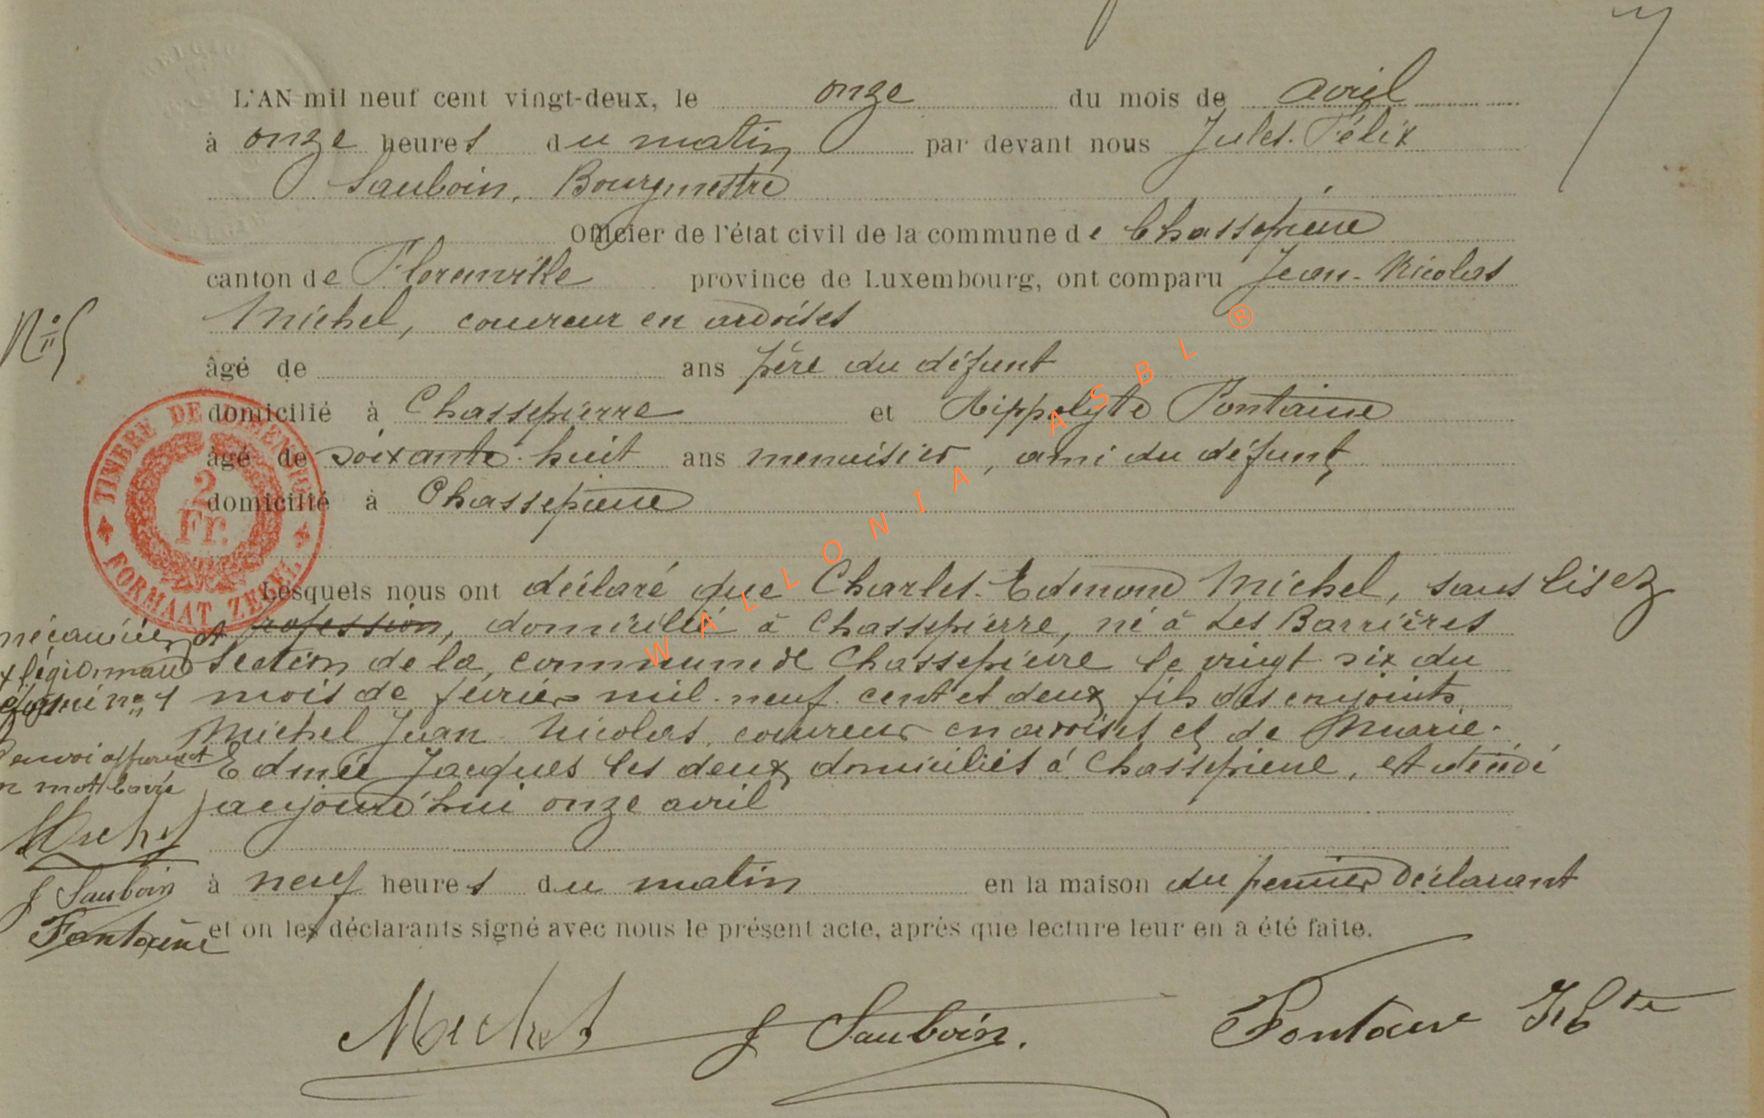 L'AN mil neuf cent vingt-deux, le onze du mois de avril
à onze heures du matin par devant nous Jules. Félix
Sauboin, Bourgmestre
Officier de l'état civil de la commune de Chassepierre
canton de Florenville province de Luxembourg, ont comparu Jean-Nicolas
Michel, couvreur en ardoises
N° 5
âgé de ans père du défunt
domicilié à Chassepierre et Hippolyte Fontaine
âgé de soixante-huit ans menuisier, ami du défunt,
domicilié à Chassepierre
TIMBRE DE DIMENSION
2 Fr.
FORMAAT ZEGEL
Lesquels nous ont déclaré que Charles-Edmond Michel, sans lisez
profession, domicilié à Chassepierre, né à Les Barrières
Section de la commune de Chassepierre le vingt six du
mois de février mil neuf cent et deux, fils des conjoints
Michel Jean Nicolas, couvreur en ardoises et de Marie-
Edmée Jacques les deux domiciliés à Chassepierre, est décédé
aujourd'hui onze avril
mécanicien et
ex légionnaire
Renvoi approuvé et
un mot barré
Michel
J Sauboin
Fontaine
à neuf heures du matin en la maison du premier déclarant
et on les déclarants signé avec nous le présent acte, après que lecture leur en a été faite.
Michel J Sauboin. Fontaine Hte
WALLONIA ASBL ®